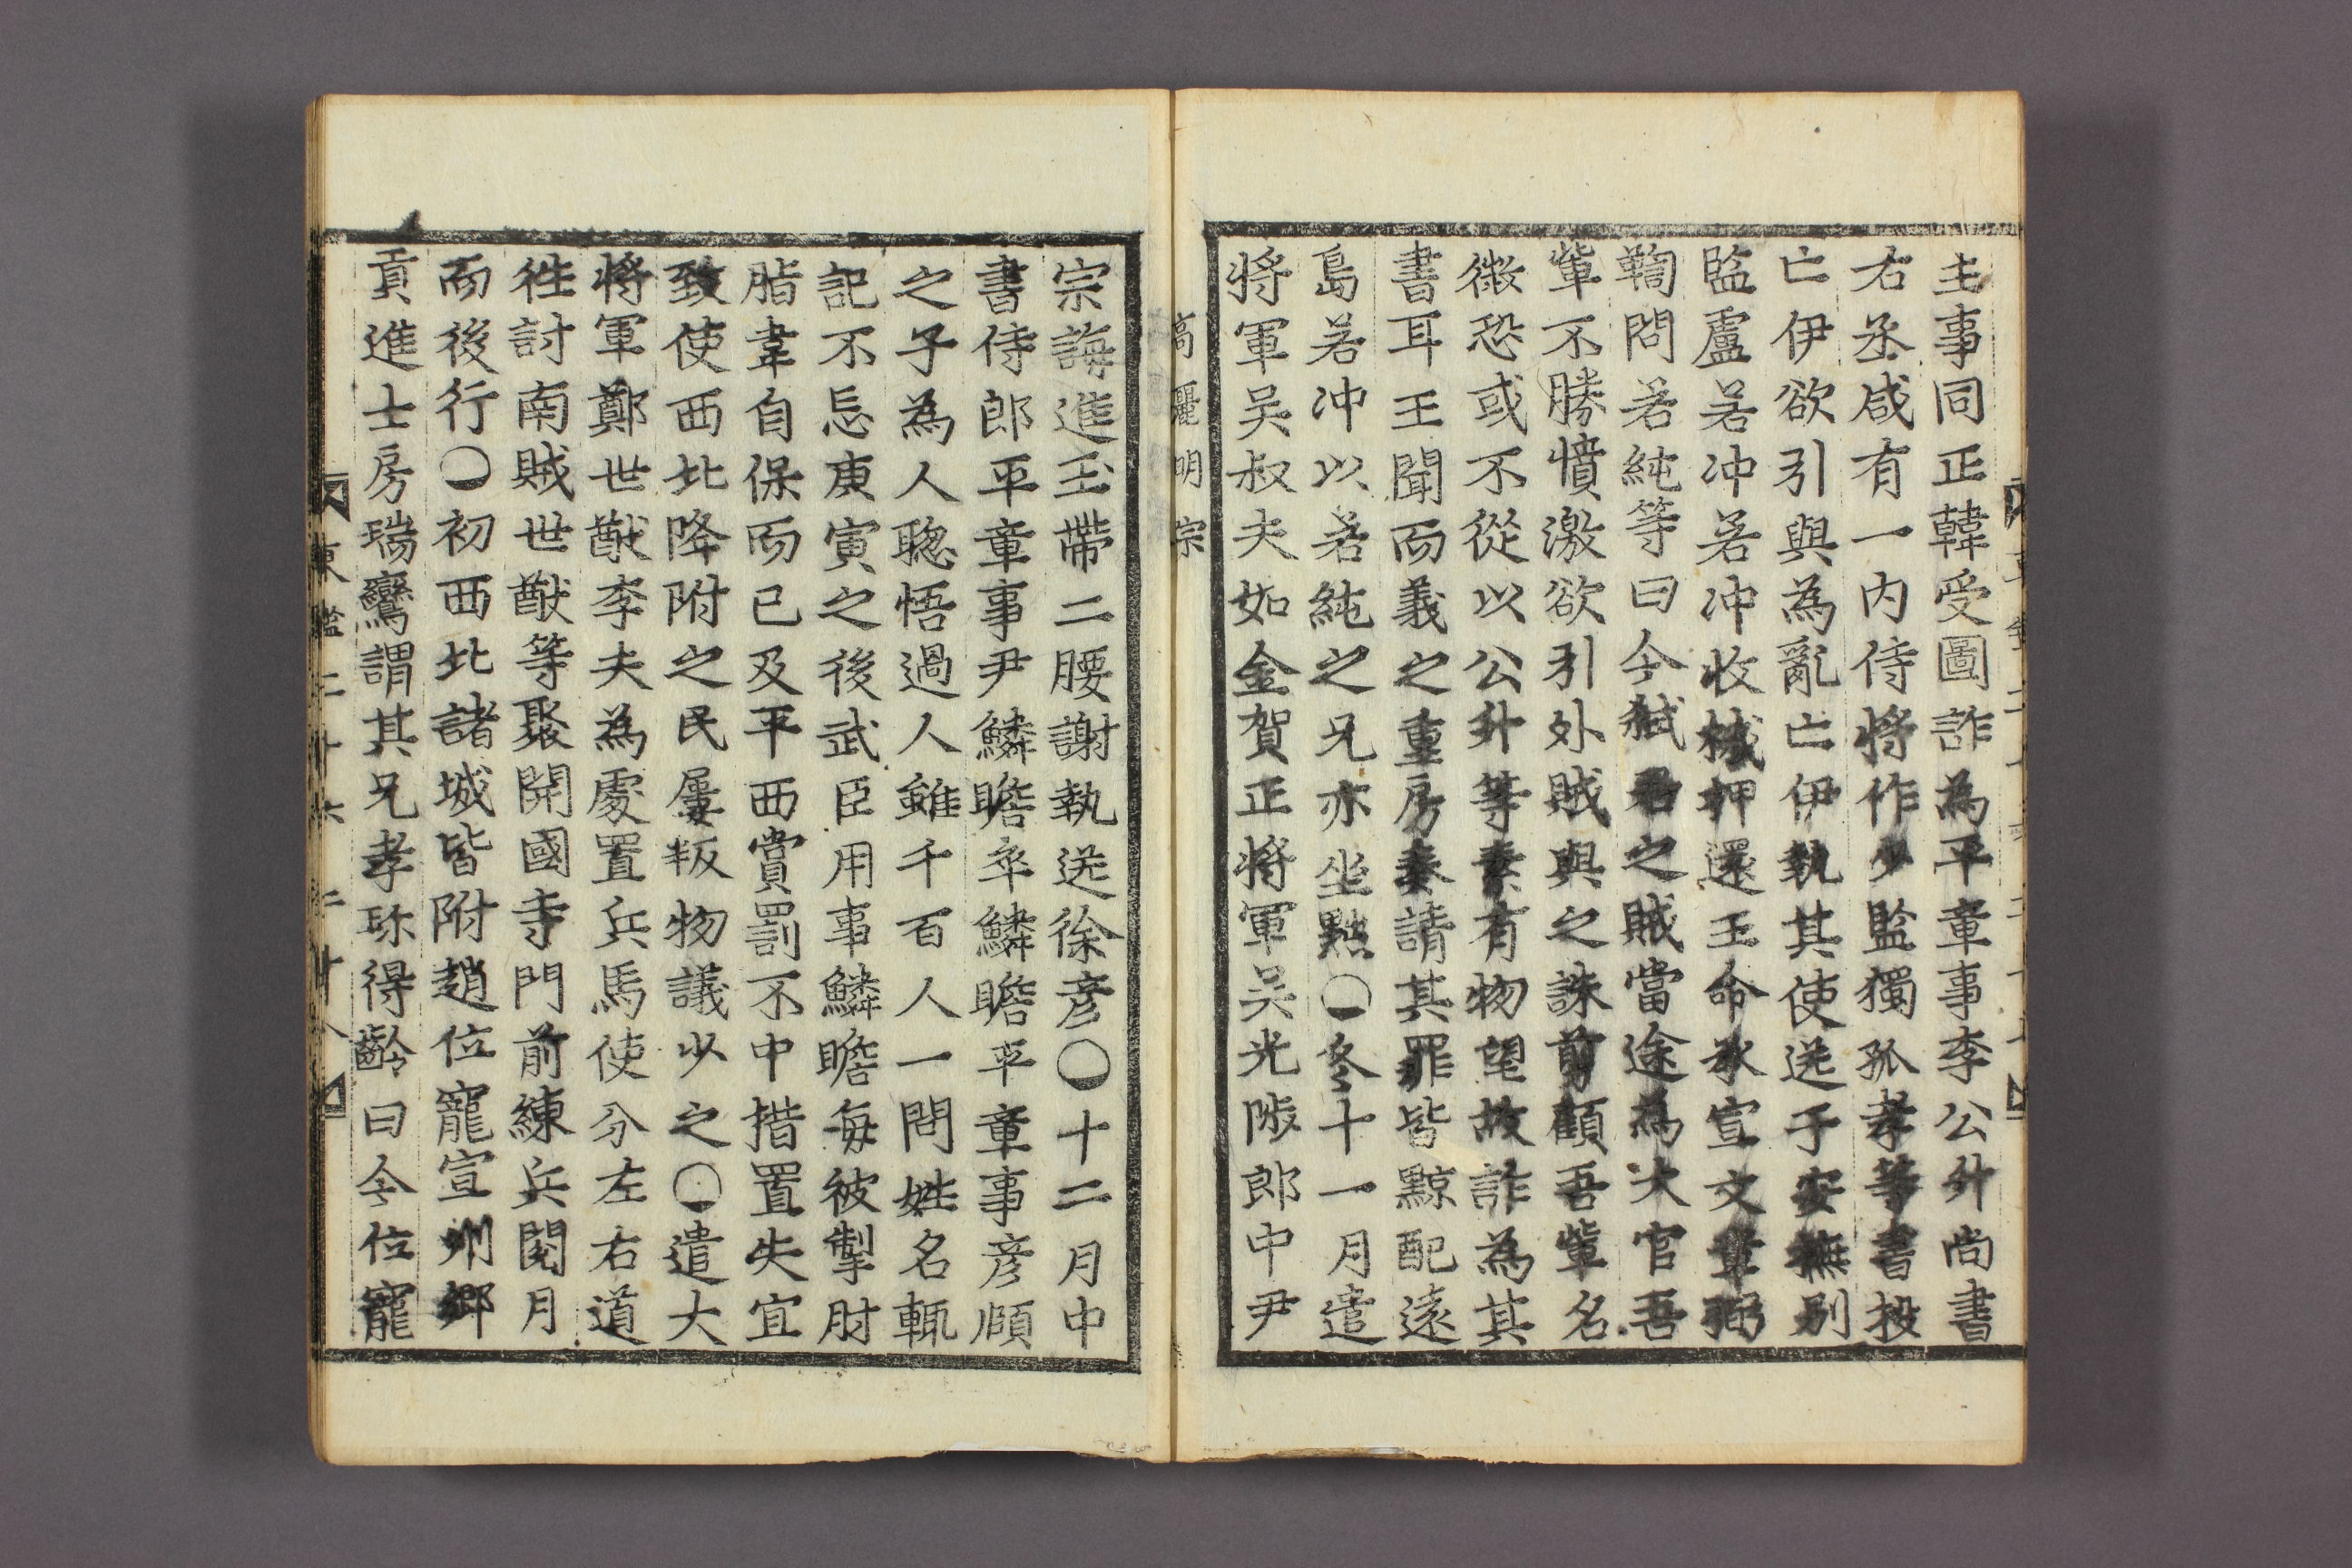 主事同正韓受圖詐為平章事李公升尚書
右丞咸有一內侍將作少監獨孤孝等書投
亡伊欲引與為亂亡伊執其使送于安撫別
監盧若冲若冲收械押還王命承宣文章弼
鞫問若純等曰今弑君之賊當途為大官吾
輩不勝憤激欲引外賊與之誅剪顧吾輩名
微恐或不從以公升等素有物望故詐為其
書耳王聞而義之重房奏請其罪皆黥配遠
島若冲以若純之兄亦坐黜〇冬十一月遣
將軍吳叔夫如金賀正將軍吳光陟郎中尹
高麗明宗
宗誨進玉帶二腰謝執送徐彦〇十二月中
書侍郎平章事尹鱗瞻卒鱗瞻平章事彦頤
之子為人聰悟過人雖千百人一問姓名輒
記不忘庚寅之後武臣用事鱗瞻每被掣肘
脂韋自保而已及平西賞罰不中措置失宜
致使西北降附之民屢叛物議少之〇遣大
將軍鄭世猷李夫為處置兵馬使分左右道
往討南賊世猷等聚開國寺門前練兵閱月
而後行〇初西北諸城皆附趙位寵宣州鄉
貢進士房瑞鸞謂其兄孝珎得齡曰今位寵
東監二十六 二十八